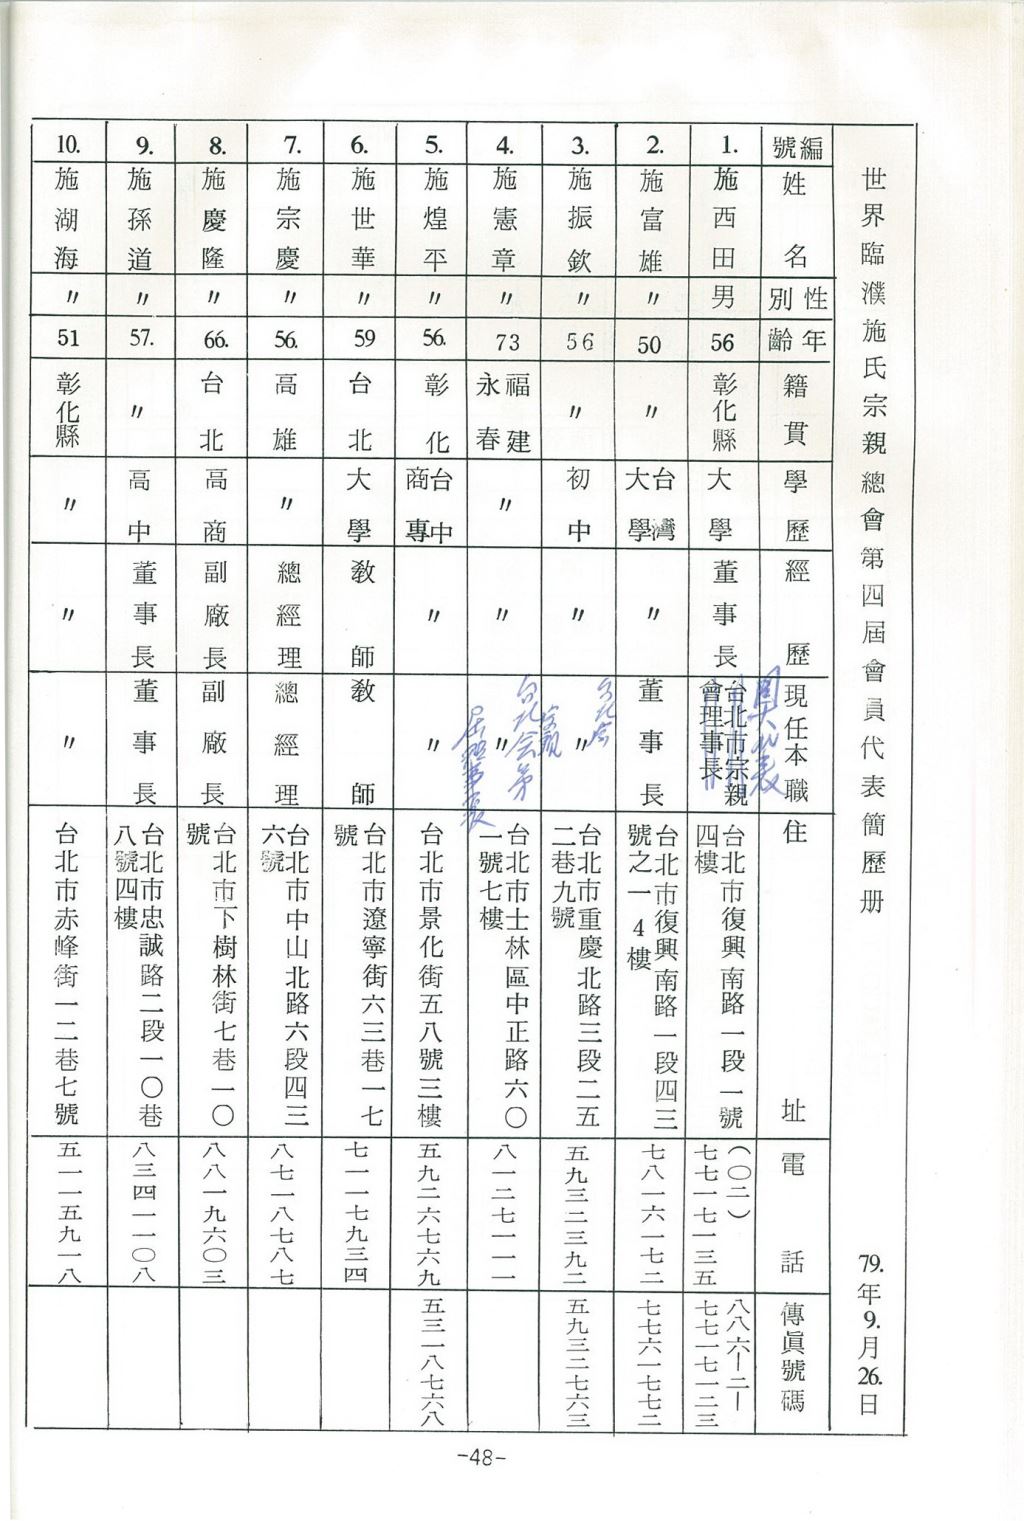 世界臨濮施氏宗親總會第四屆會員代表簡歷册
79.年9.月26.日
編號
姓名
性別
年齡
籍貫
學歷
經歷
現任本職
住址
電話
傳眞號碼
1.
施西田
男
56
彰化縣
大學
董事長
台北市宗親
會理事長
台北市復興南路一段一號
四樓
(〇二)
七七一七一三五
八八六—二—
七七一七一二三
2.
施富雄
〃
50
〃
台灣
大學
〃
董事長
台北市復興南路一段四三
號之一4樓
七八一六一七二
七七六一七七二
3.
施振欽
〃
56
〃
初中
〃
〃
台北会
台北市重慶北路三段二五
二巷九號
五九三二三九二
五九三二七六三
4.
施憲章
〃
73
福建
永春
〃
〃
〃
台北市士林區中正路六〇
一號七樓
八一二七一一一
5.
施煌平
〃
56.
彰化
台中
商專
〃
〃
台北市景化街五八號三樓
五九二六七六九
五三一八七六八
6.
施世華
〃
59
台北
大學
教師
教師
台北市遼寧街六三巷一七
號
七一一七九三四
7.
施宗慶
〃
56.
高雄
〃
總經理
總經理
台北市中山北路六段四三
六號
八七一八七八七
8.
施慶隆
〃
66.
台北
高商
副廠長
副廠長
台北市下樹林街七巷一〇
號
八八一九六〇三
9.
施孫道
〃
57.
〃
高中
董事長
董事長
台北市忠誠路二段一〇巷
八號四樓
八三四一一〇八
10.
施湖海
〃
51
彰化縣
〃
〃
〃
台北市赤峰街一二巷七號
五一一五九一八
-48-